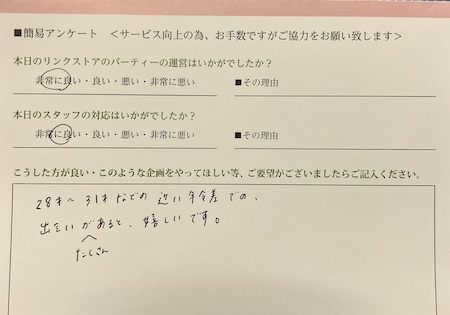 ■簡易アンケート ＜サービス向上の為、お手数ですがご協力をお願い致します＞
本日のリンクストアのパーティーの運営はいかがでしたか？
非常に良い・良い・悪い・非常に悪い ■その理由
本日のスタッフの対応はいかがでしたか？
非常に良い・良い・悪い・非常に悪い ■その理由
こうした方が良い・このような企画をやってほしい等、ご要望がございましたらご記入ください。
28才〜31才などの近い年令差での、
出会いがあると、嬉しいです。
たくさん